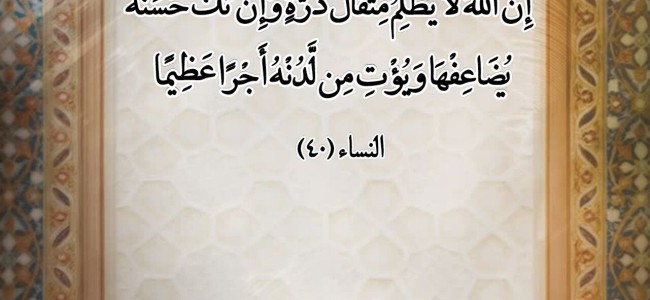 إِنَّ اللَّهَ لَا يَظْلِمُ مِثْقَالَ ذَرَّةٍ وَإِنْ تَكُ حَسَنَةً
يُضَاعِفْهَا وَيُؤْتِ مِن لَّدُنْهُ أَجْرًا عَظِيمًا
النساء (٤٠)